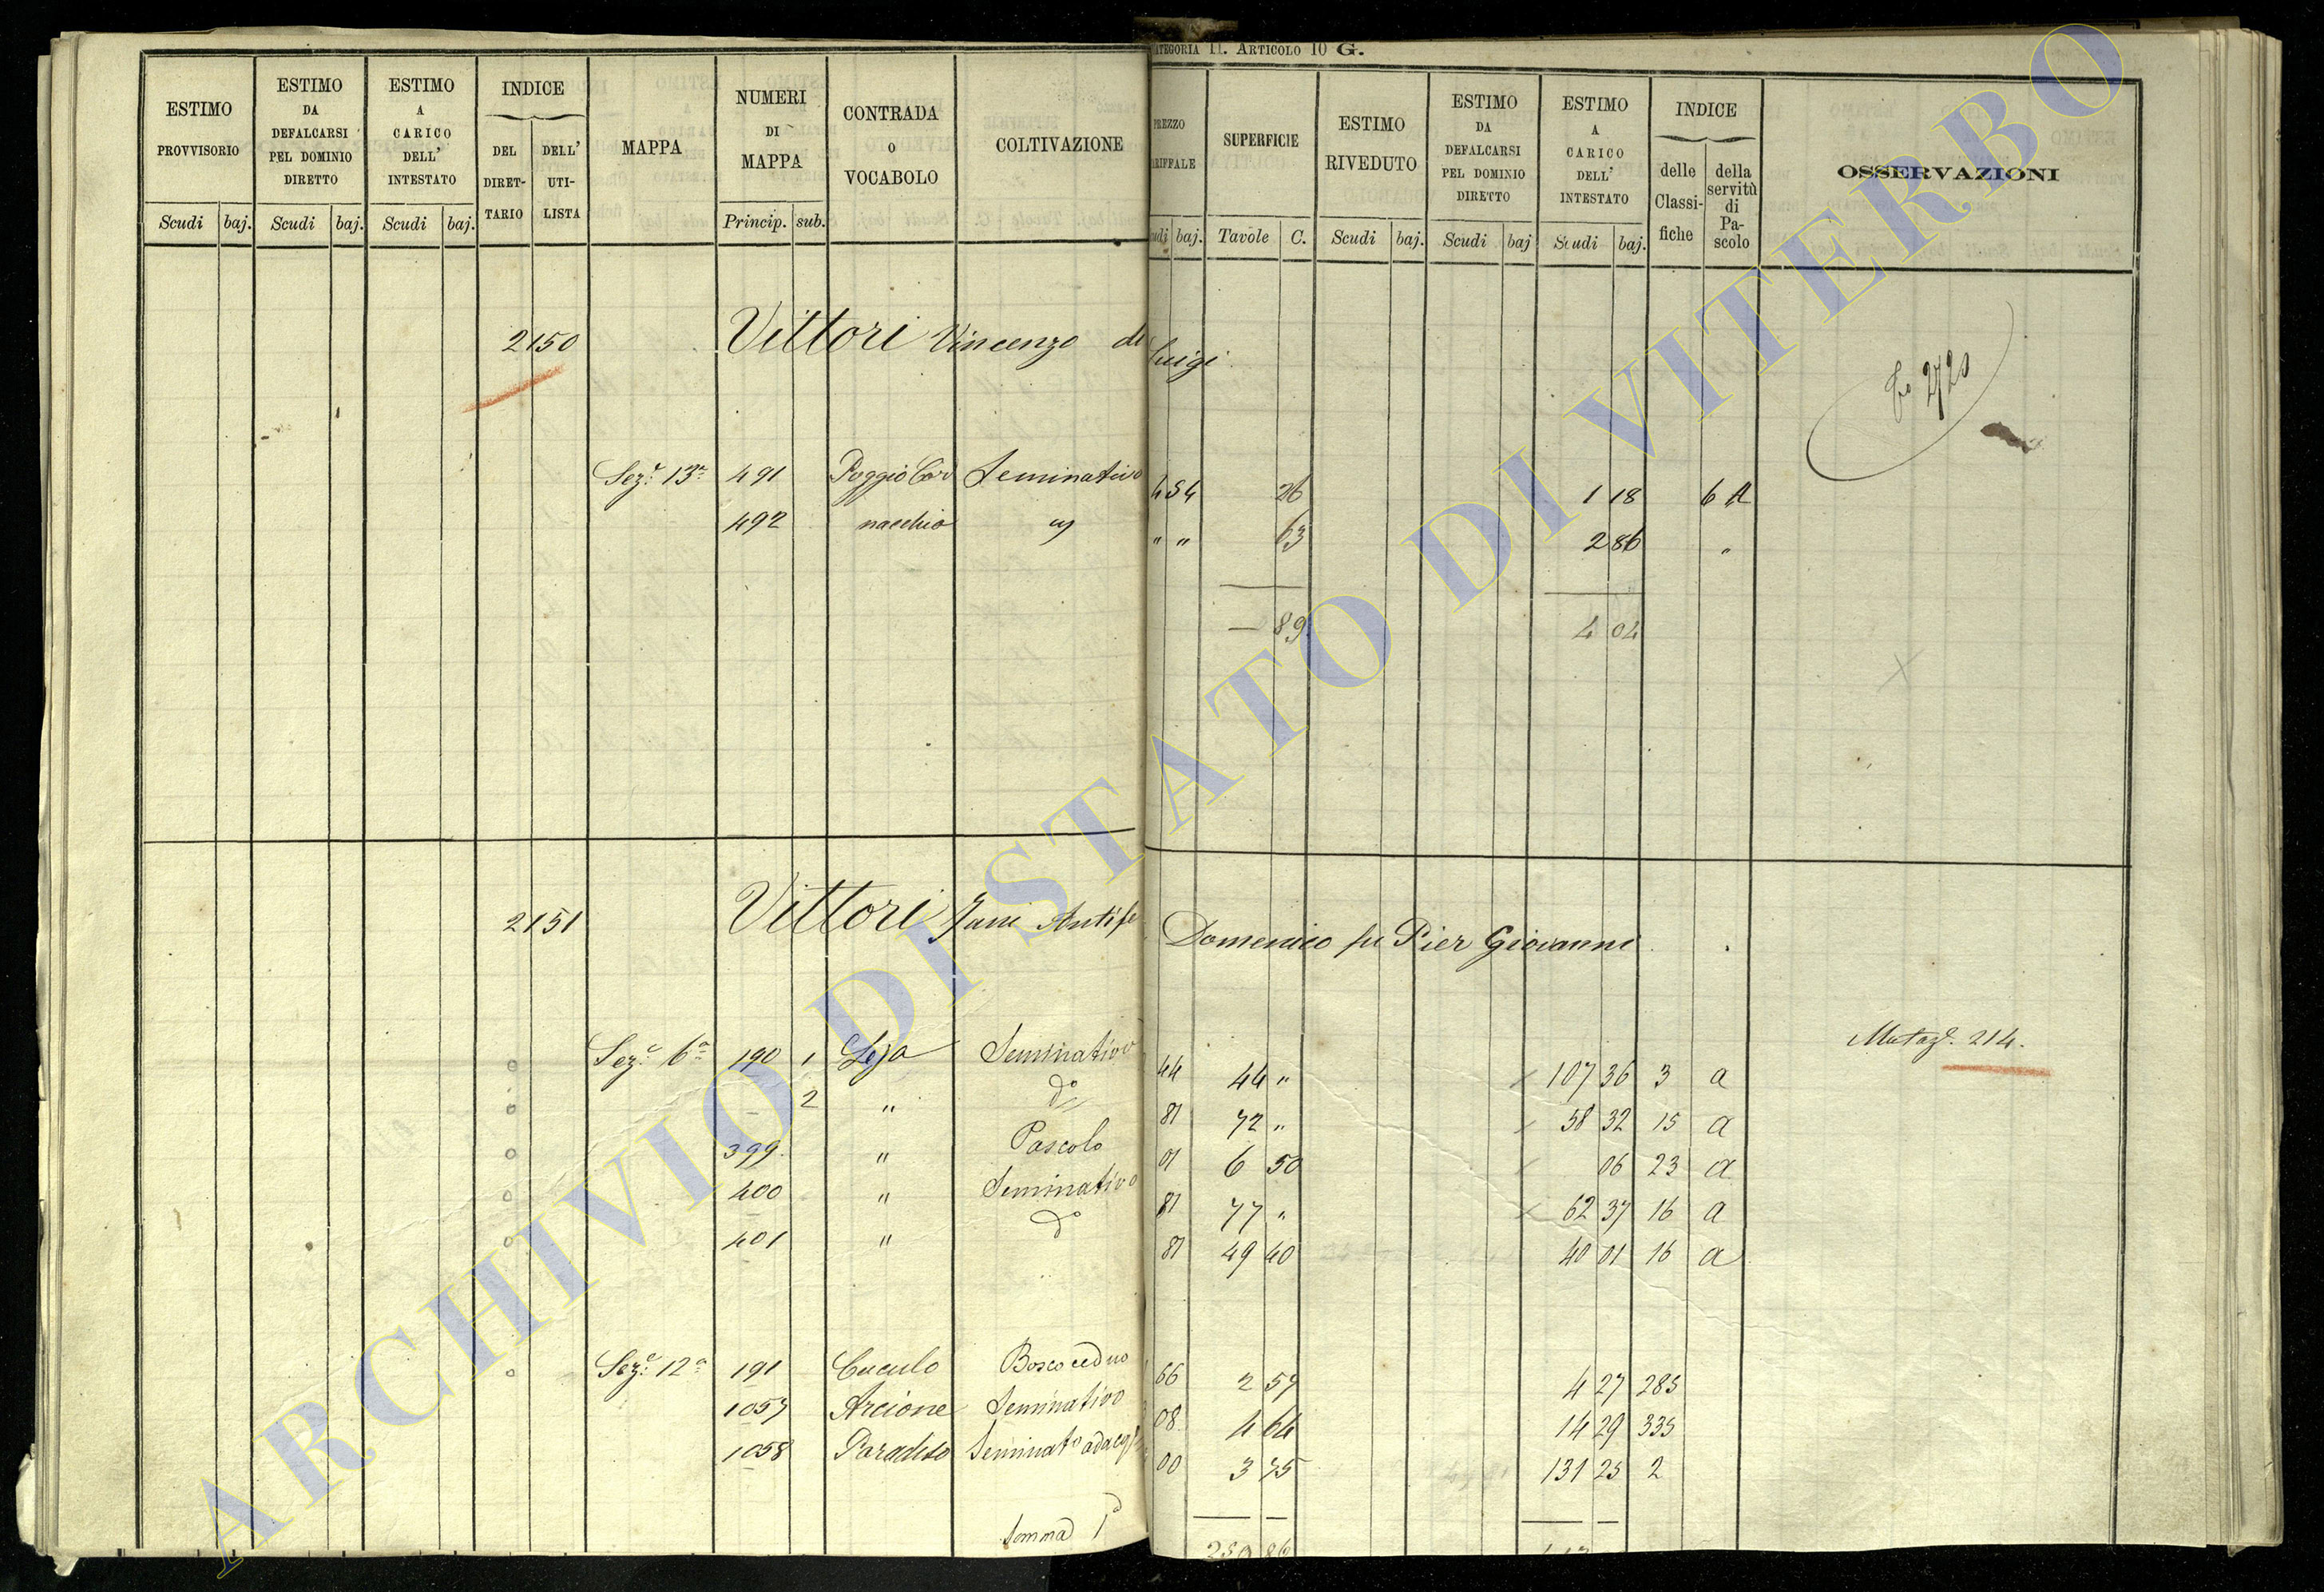 CATEGORIA II. ARTICOLO 10 G.
ESTIMO PROVVISORIO
ESTIMO DA DEFALCARSI PEL DOMINIO DIRETTO
ESTIMO A CARICO DELL' INTESTATO
INDICE
DEL DIRET- TARIO
DELL' UTI- LISTA
MAPPA
NUMERI DI MAPPA
CONTRADA O VOCABOLO
COLTIVAZIONE
PREZZO TARIFFALE
SUPERFICIE
ESTIMO RIVEDUTO
ESTIMO DA DEFALCARSI PEL DOMINIO DIRETTO
ESTIMO A CARICO DELL' INTESTATO
INDICE
delle Classi- fiche
della servitù di Pa- scolo
OSSERVAZIONI
Scudi baj. Scudi baj. Scudi baj. Princip. sub. Scudi baj. Tavole C. Scudi baj. Scudi baj Scudi baj.
2150 Vittori Vincenzo di Luigi
2720
Sez.e 13a 491 Poggio Cor Seminativo 4 54 26 1 18 6 A
492 nacchio " " 63 2 86 "
— 89 4 04
2151 Vittori Domenico fu Pier Giovanni
Mutaz.e 214.
Sez.e 6a 190 1 Leja Seminativo 44 44 " 107 36 3 a
2 " do 81 72 " 58 32 15 a
399 " Pascolo 01 6 50 06 23 a
400 " Seminativo 81 77 " 62 37 16 a
401 " do 81 49 40 40 01 16 a
Sez.e 12a 191 Cuculo Bosco ceduo 66 2 57 4 27 285
1057 Arcione Seminativo 08 4 64 14 29 335
1058 Paradiso Seminato 00 3 75 131 25 2
Somma
ARCHIVIO DI STATO DI VITERBO